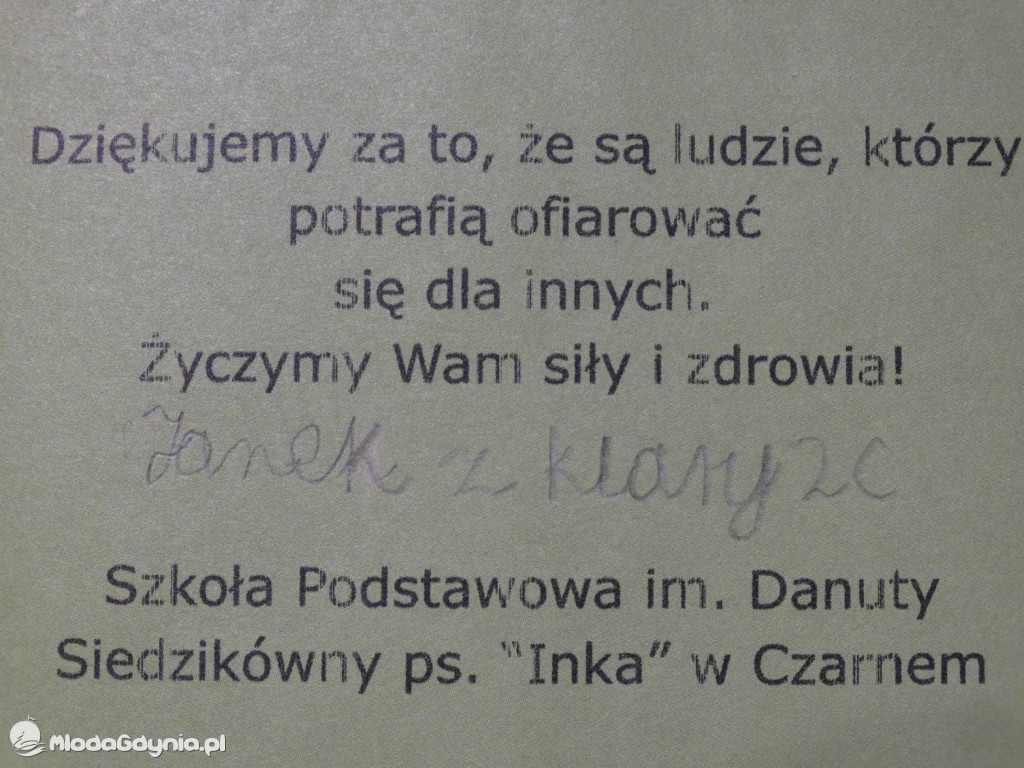 Dziękujemy za to, że są ludzie, którzy
potrafią ofiarować
się dla innych.
Życzymy Wam siły i zdrowia!
Janek z klasy 2c
Szkoła Podstawowa im. Danuty
Siedzikówny ps. "Inka" w Czarnem
MlodaGdynia.pl